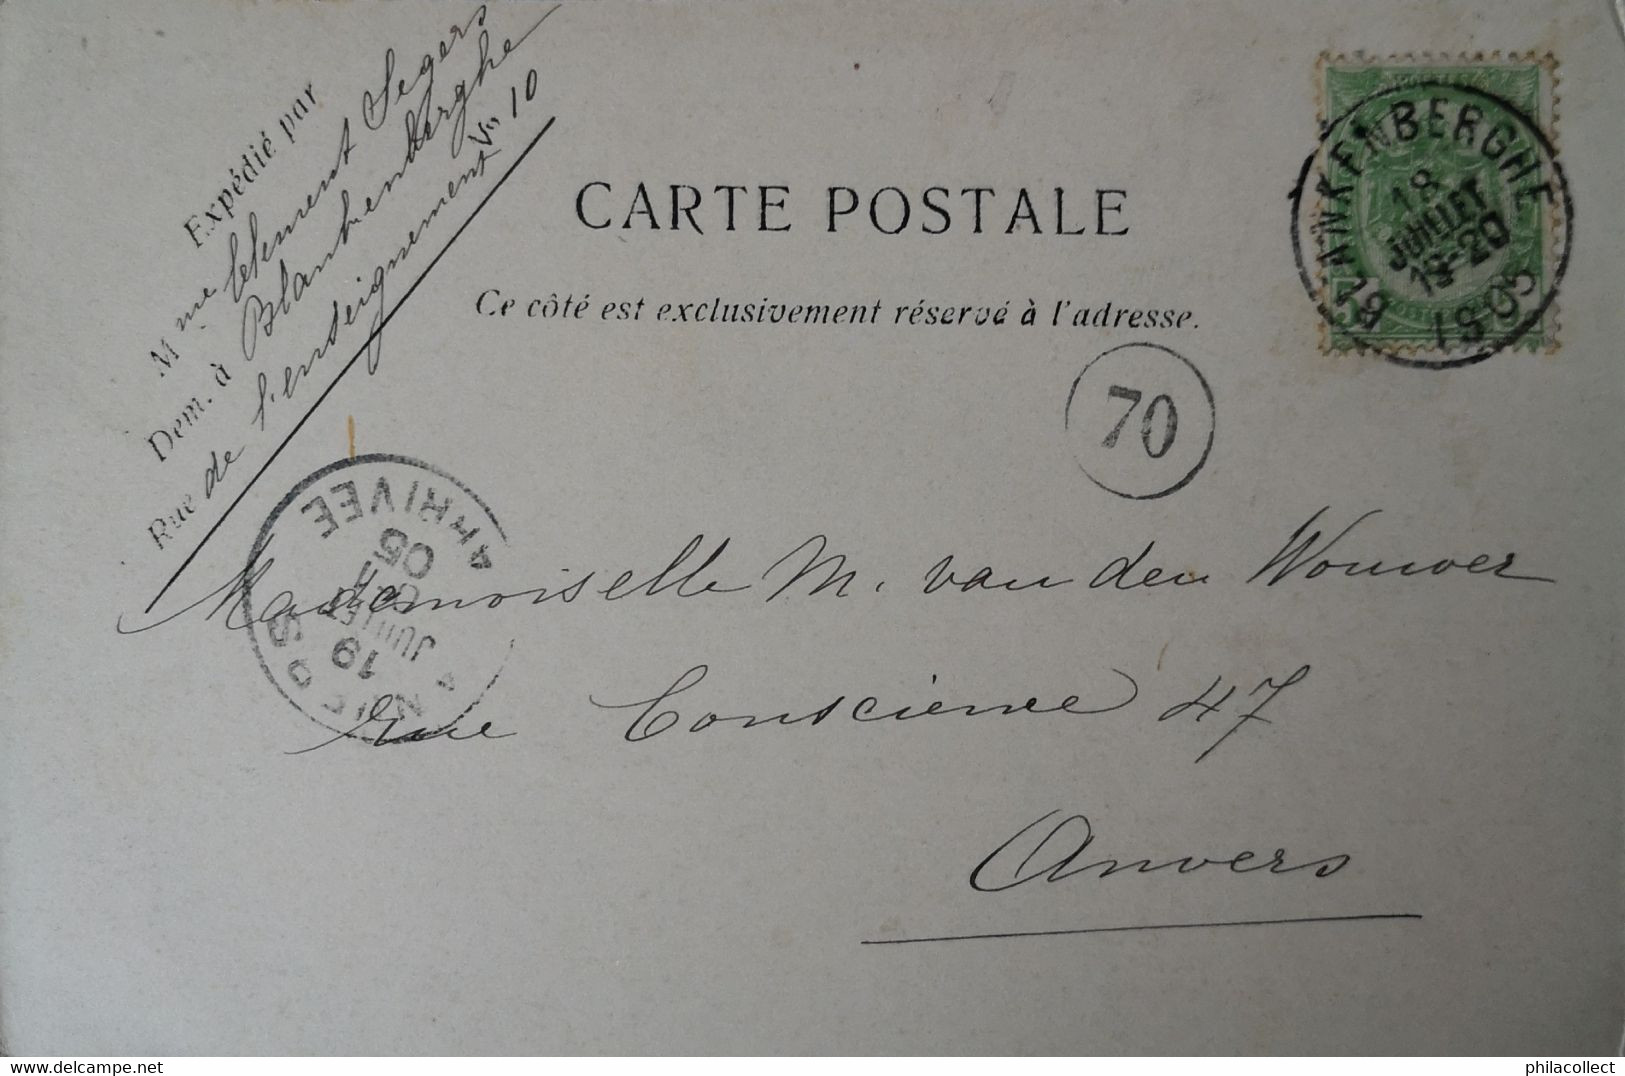 Expédié par
Mme Clement Segers
Dem. à Blankenberghe
Rue de l'enseignement No 10
CARTE POSTALE
Ce côté est exclusivement réservé à l'adresse.
BLANKENBERGHE
18
JUILLET
19-20
1905
70
ARRIVEE
05
JUILLET
19
Mademoiselle M. van den Wouwer
Rue Conscience 47
Anvers
https://www.delcampe.net
philacollect